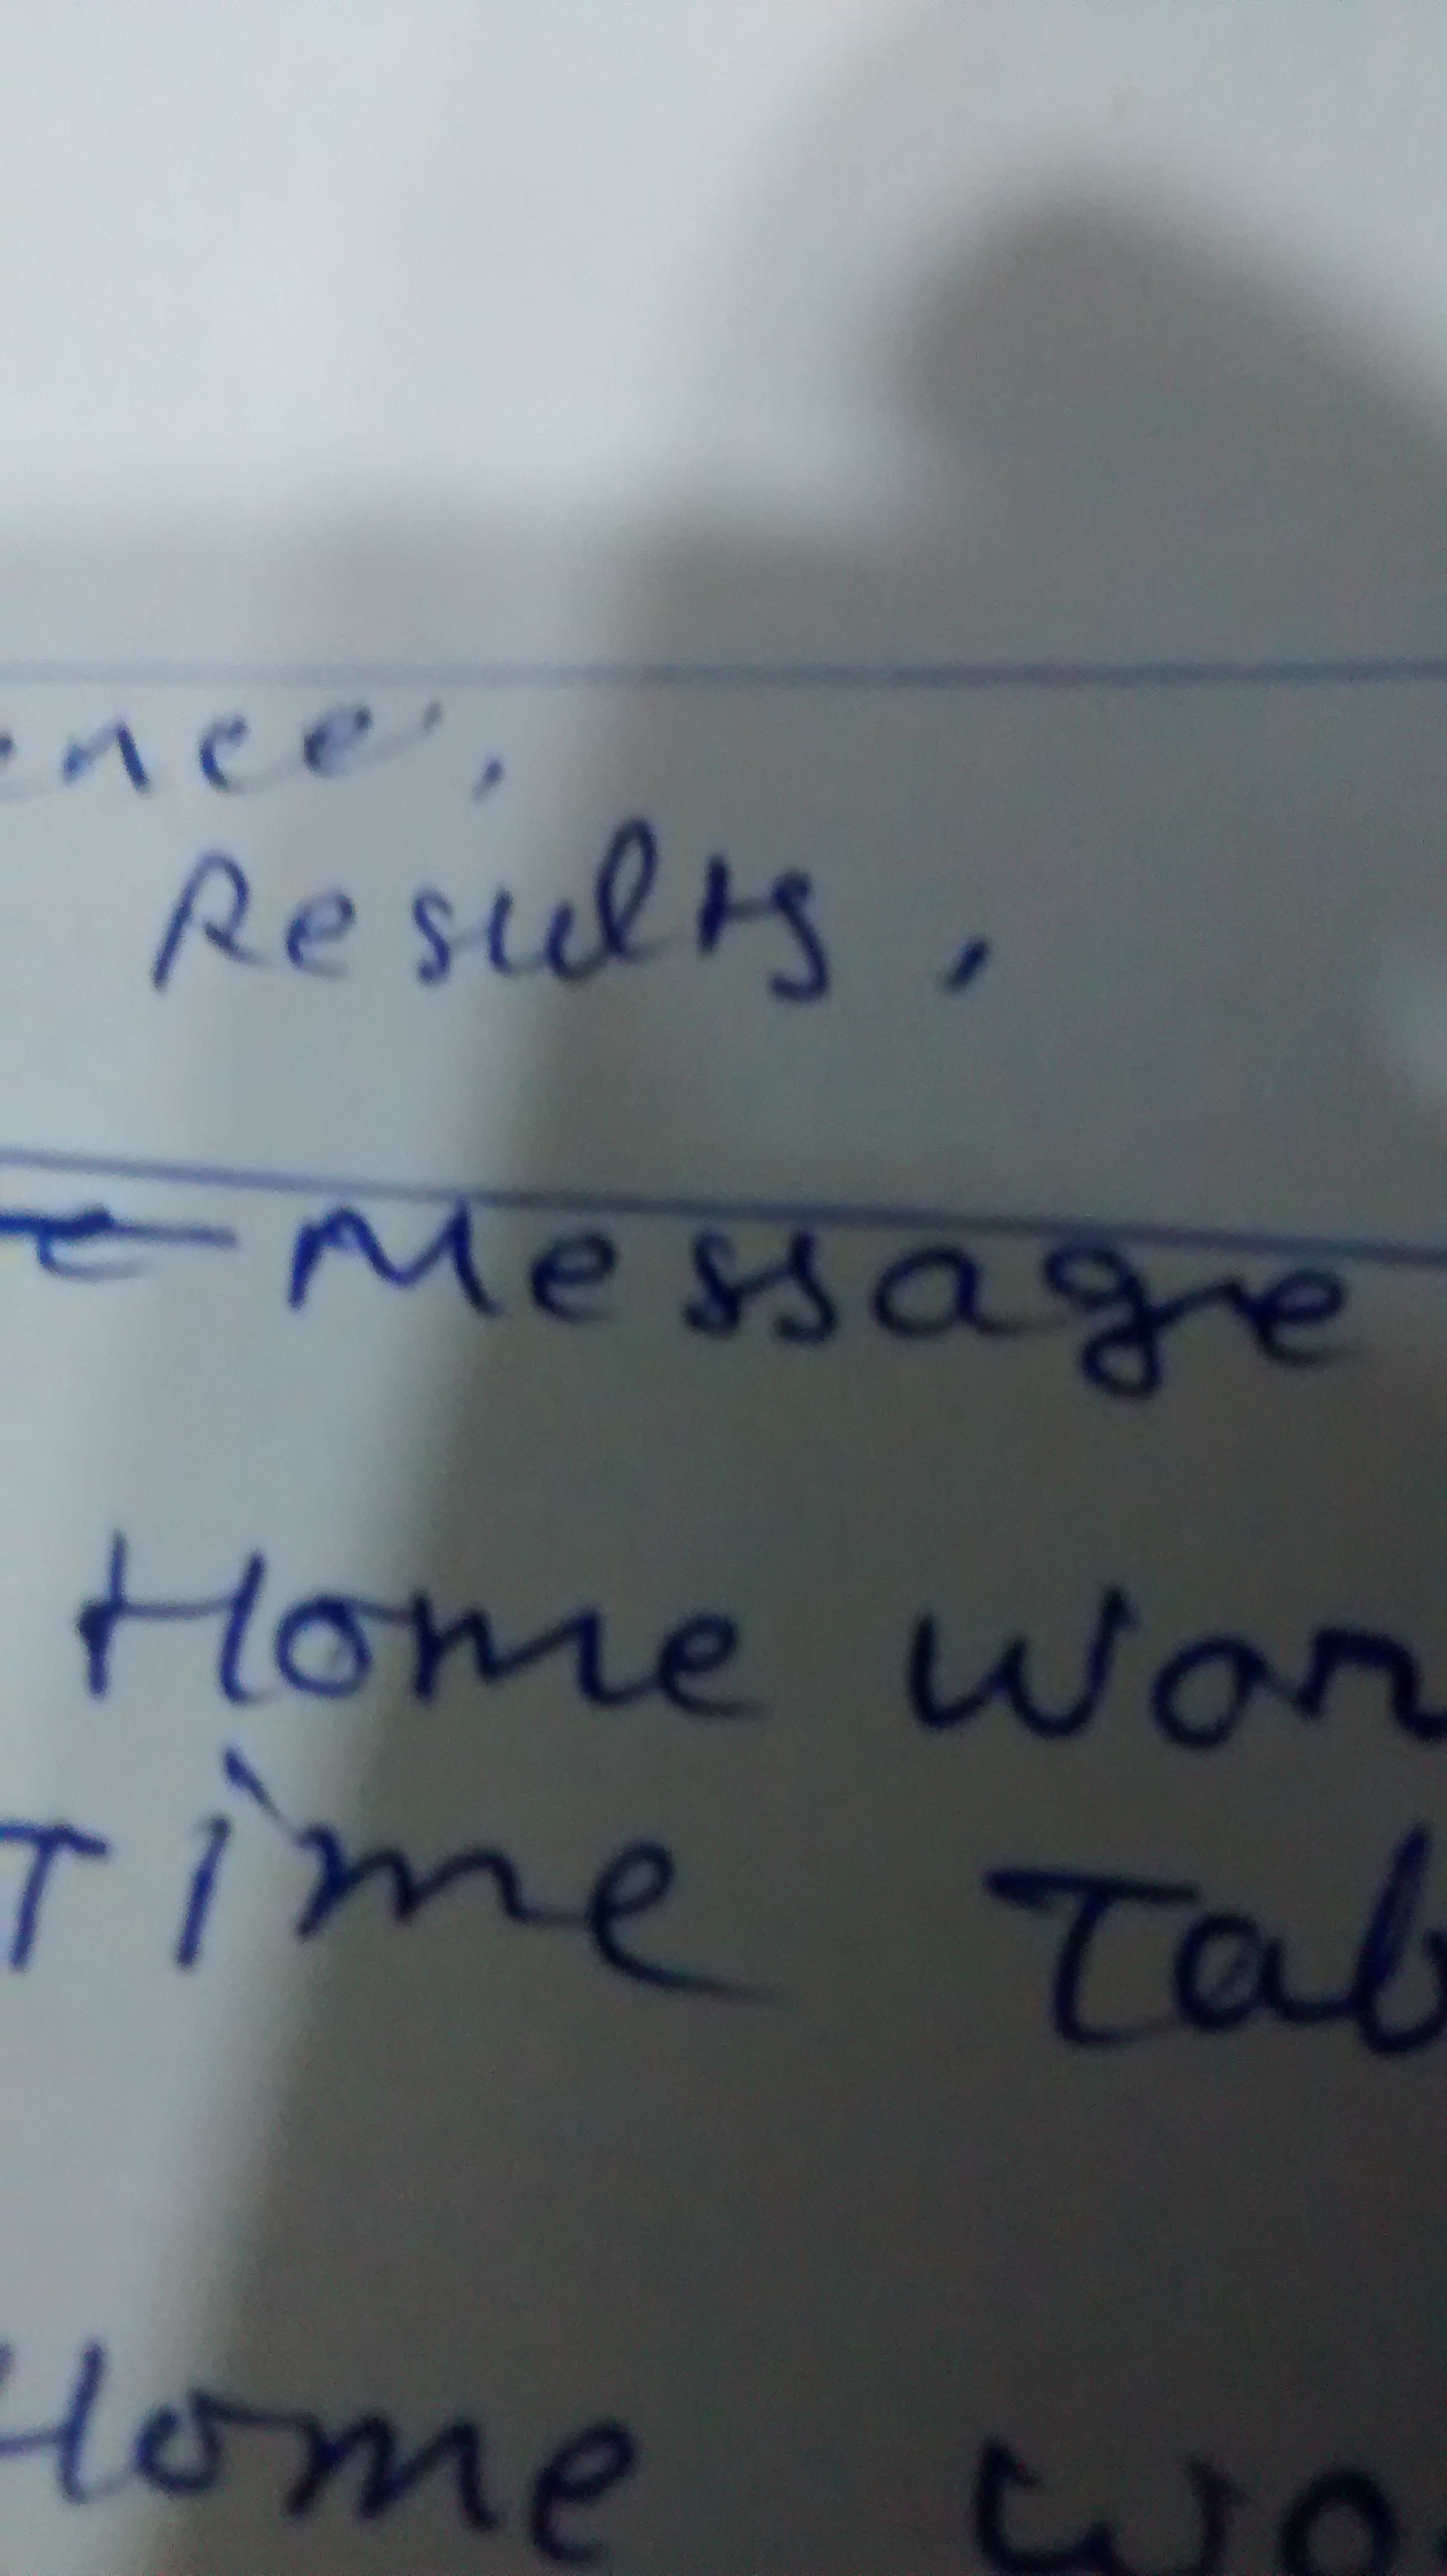 ence,
Results,
e Message
Home Wor
Time Tab
Home wo